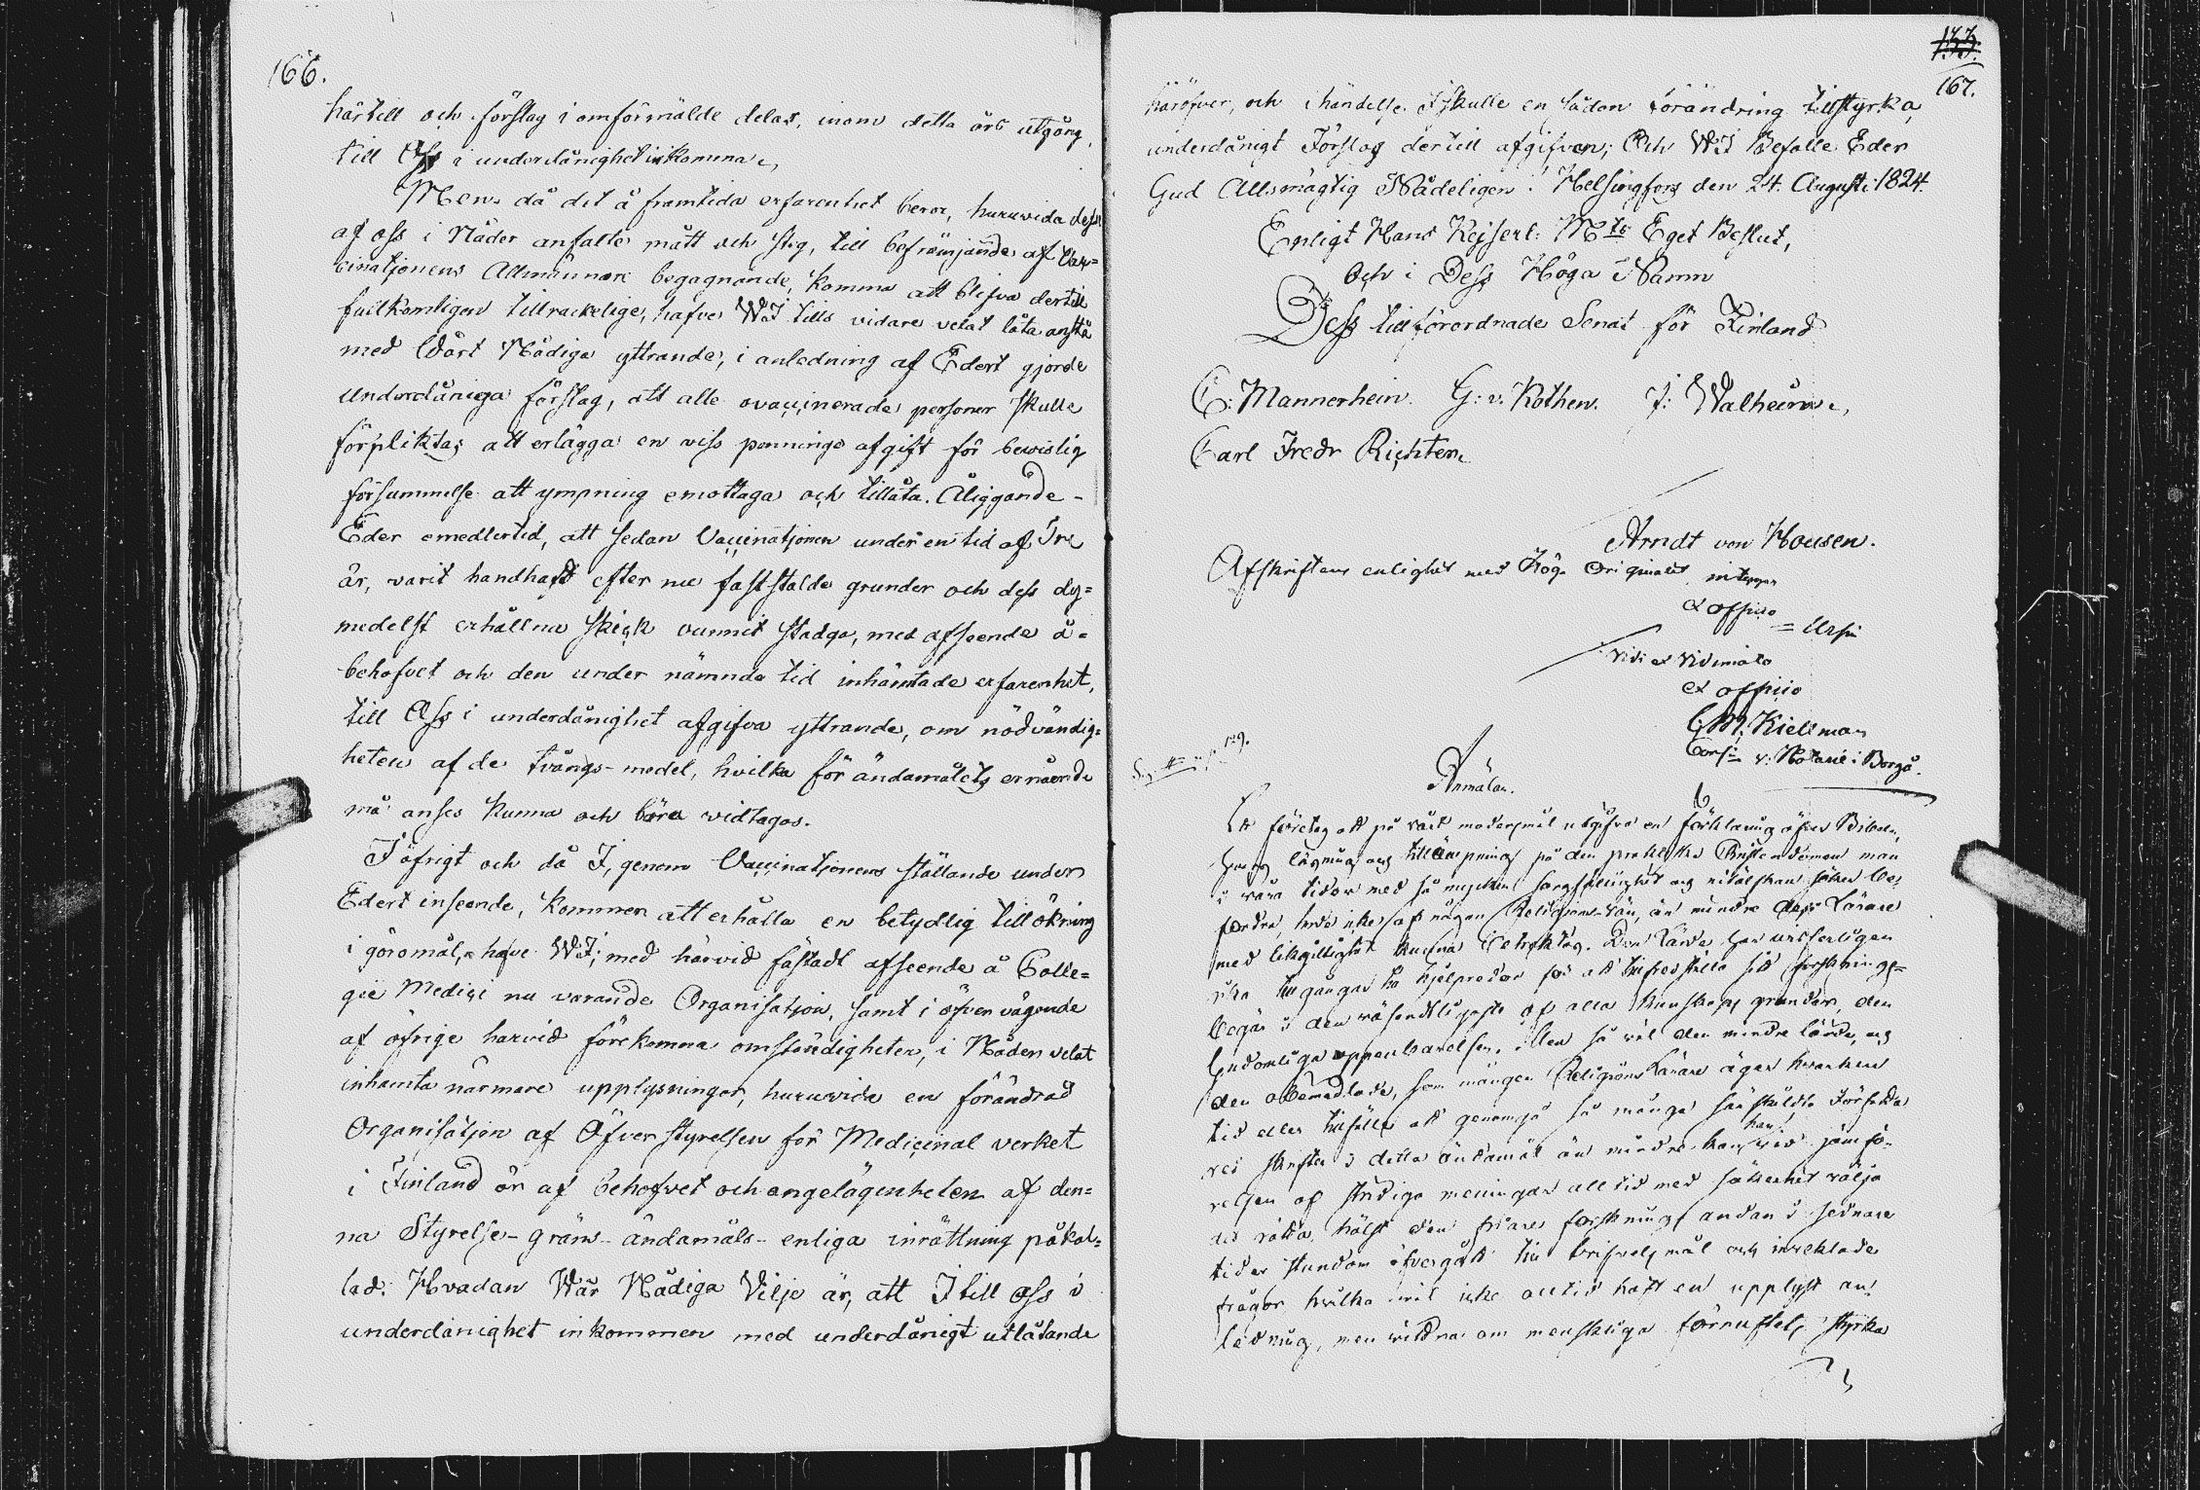 166.
härtill och förslag i omförmälde delar, inom detta års utgång,
till Oss i underdånighet inkomma.
Men då det å framtida erfarenhet beror, huruvida desse
af oss i Nåder anfalte mått och steg, till befrämjande af Vac-
cinationens Allmännare begagnande, komma att blifva dertill
fullkomligen tillräckelige, hafve Wi tills vidare velat låta anstå
med Wårt Nådiga yttrande, i anledning af Edert gjorde
underdåniga förslag, att alle ovaccinerade personer skulle
förpliktas att erlägga en viss pennings afgift för bewislig
försummelse att ympning emottaga och tillåta. Åliggande
Eder emedlertid, att sedan Vaccinationen under en tid af Tre
år, varit handhafd efter nu faststälde grunder och dess dy=
medelst erhållna skick vunnit stadga, med afseende å
behofvet och den under nämnda tid inhämtade erfarenhet,
till Oss i underdånighet afgifva yttrande, om nödvändig=
heten af de tvångs-medel, hvilka för ändamålets ernående
må anses kunna och böra widtagas.
I öfrigt och då I, genom Vaccinationens ställande under
Edert inseende, kommen att erhålla en betydlig tillökning
i göromål, hafve Wi, med härvid fästadt afseende å Colle=
gii Medici nu varande Organisation, samt i öfvervägende
af öfrige harvid förekomna omständigheter, i Nåder velat
inhämta närmare upplysningar, huruvida en förändrad
Organisation af Öfverstyrelsen för Medicinal verket
i Finland är af behofvet och angelägenheten af den=
na Styrelse-gräns ändamåls-enliga inrättning påkal=
lad. Hvadan Wår Nådiga Vilje är, att I till Oss i
underdånighet inkommen med underdånigt utlåtande
133.
167.
härofver, och i händelse I skulle en sådan förändring tillstyrka,
underdånigt Förslag dertill afgifven; Och Wi Befalle Eder
Gud Allsmägtig Nådeligen! Helsingfors den 24. Augusti 1824.
Enligt Hans Kejserl: M:ts Eget Beslut,
Och i Dess Höga Namn
Dess tillförordnade Senat för Finland
C: Mannerheim. G: v. Kothen. J: Walheim,
Carl Fredr Richter
Arndt von Housen.
Afskriftens enlighet med Hög. Originalet, intygar
ex officio
Vidi et vidimata
ex officio
C. M. Kiellman
Cons: v: Notarie i Borgå.
N:o 9.
Anmälan.
Ett företag att på vårt modersmål utgifva en förklaring öfver Bibeln,
i våra tidor med så mycken sorgfällighet
med likgiltighet kunna betraktas. Den Lärde har
begär i den väsendtligaste af alla kunskaps grunder, den
Gudomliga uppenbarelsen. Men så väl den mindre lärde, och
den obemedlade, som mången Religions Lärare äger hvarken
tid eller tillfälle att genomgå så många särskildte Författa
res skrifter i detta ändamål än mindre kan han wid jämfö-
relsen af stridiga meningar alltid med säkerhet välja
det rätta, hälst den friare forsknings andan i sednare
tider stundom öfvergått till tvifvels mål och invecklade
frågor hvilka icke alltid haft en upplyst an
ledning, men vittna om menskliga förnuftets styrka